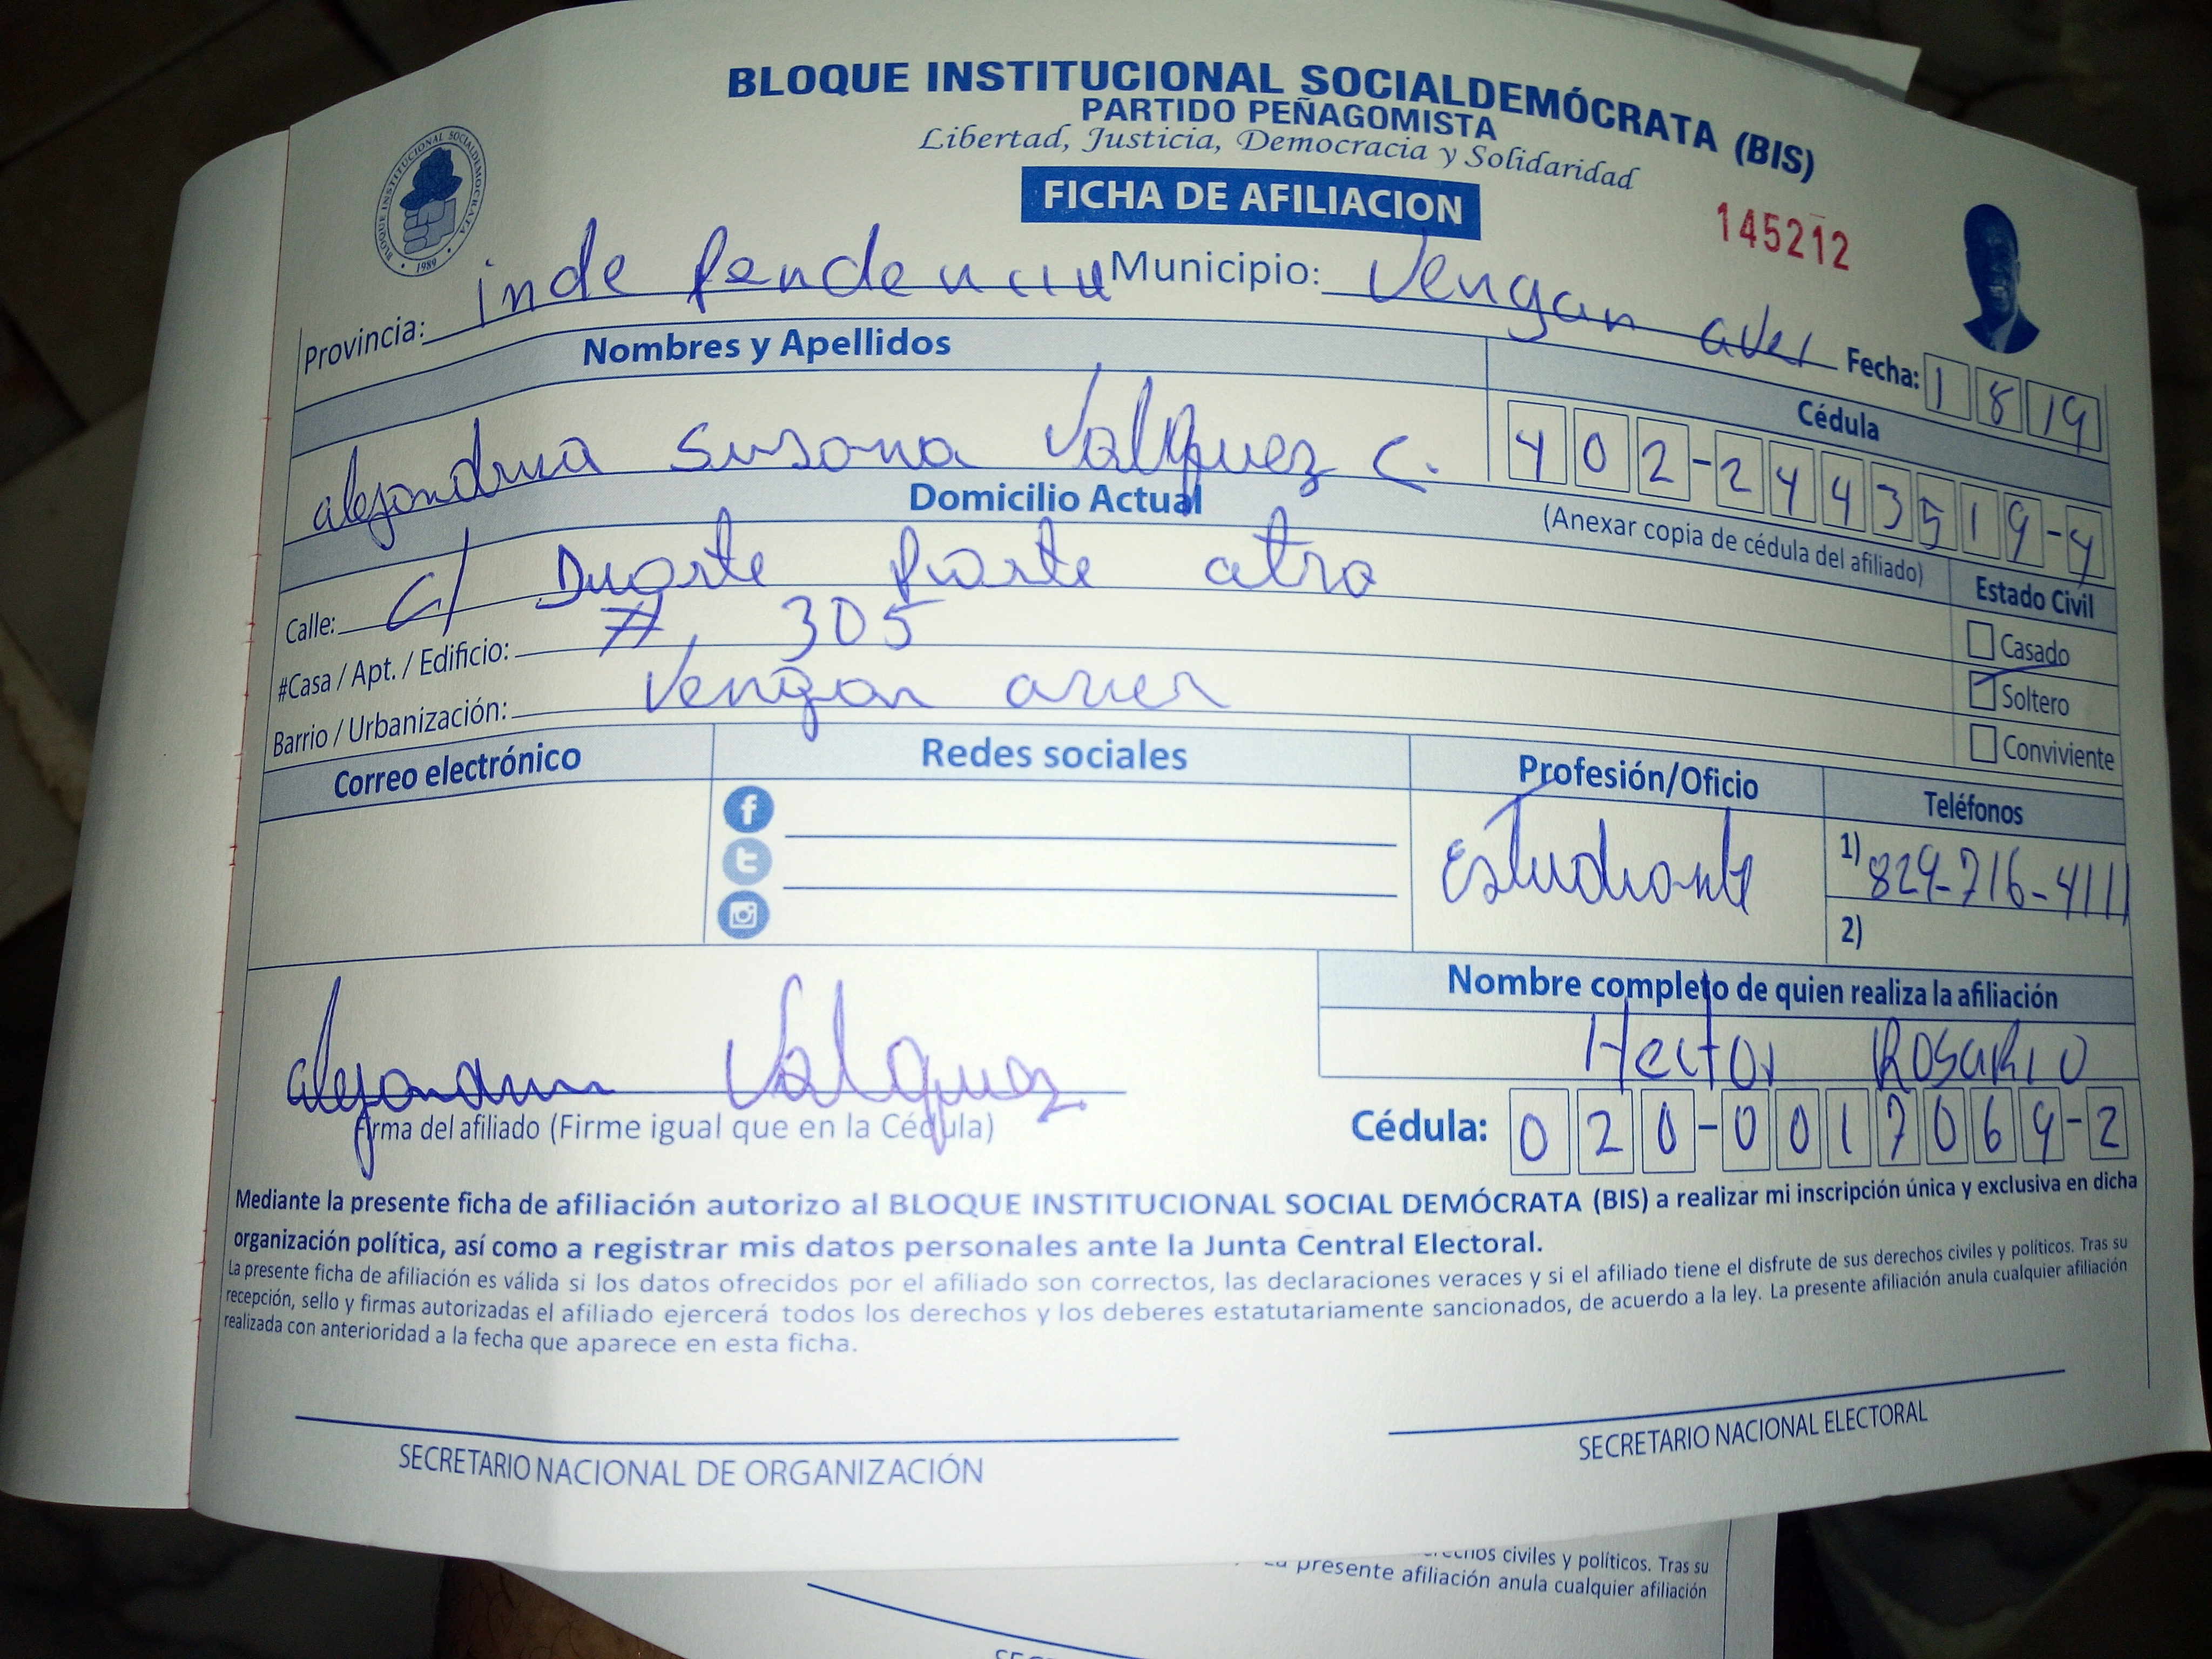 BLOQUE INSTITUCIONAL SOCIALDEMÓCRATA (BIS)
PARTIDO PEÑAGOMISTA
Libertad, Justicia, Democracia y Solidaridad
FICHA DE AFILIACION
145212
BLOQUE INSTITUCIONAL SOCIALDEMÓCRATA
1989
Provincia: inde pendencia Municipio: Vengan aver Fecha: 1 8 19
Nombres y Apellidos Cédula
alejandrina Susana Valquez C. 402-2443519-4
Domicilio Actual (Anexar copia de cédula del afiliado)
Calle: c/ Duarte parte atra Estado Civil
#Casa / Apt. / Edificio: # 305 Casado
Barrio / Urbanización: Vengan aver Soltero
Conviviente
Correo electrónico Redes sociales Profesión/Oficio Teléfonos
Estudiante 1) 829-716-4111
2)
Nombre completo de quien realiza la afiliación
Hector Rosario
alejandrina Valquez
Firma del afiliado (Firme igual que en la Cédula) Cédula: 020-0017069-2
Mediante la presente ficha de afiliación autorizo al BLOQUE INSTITUCIONAL SOCIAL DEMÓCRATA (BIS) a realizar mi inscripción única y exclusiva en dicha
organización política, así como a registrar mis datos personales ante la Junta Central Electoral.
La presente ficha de afiliación es válida si los datos ofrecidos por el afiliado son correctos, las declaraciones veraces y si el afiliado tiene el disfrute de sus derechos civiles y políticos. Tras su
recepción, sello y firmas autorizadas el afiliado ejercerá todos los derechos y los deberes estatutariamente sancionados, de acuerdo a la ley. La presente afiliación anula cualquier afiliación
realizada con anterioridad a la fecha que aparece en esta ficha.
SECRETARIO NACIONAL DE ORGANIZACIÓN SECRETARIO NACIONAL ELECTORAL
civiles y políticos. Tras su
presente afiliación anula cualquier afiliación